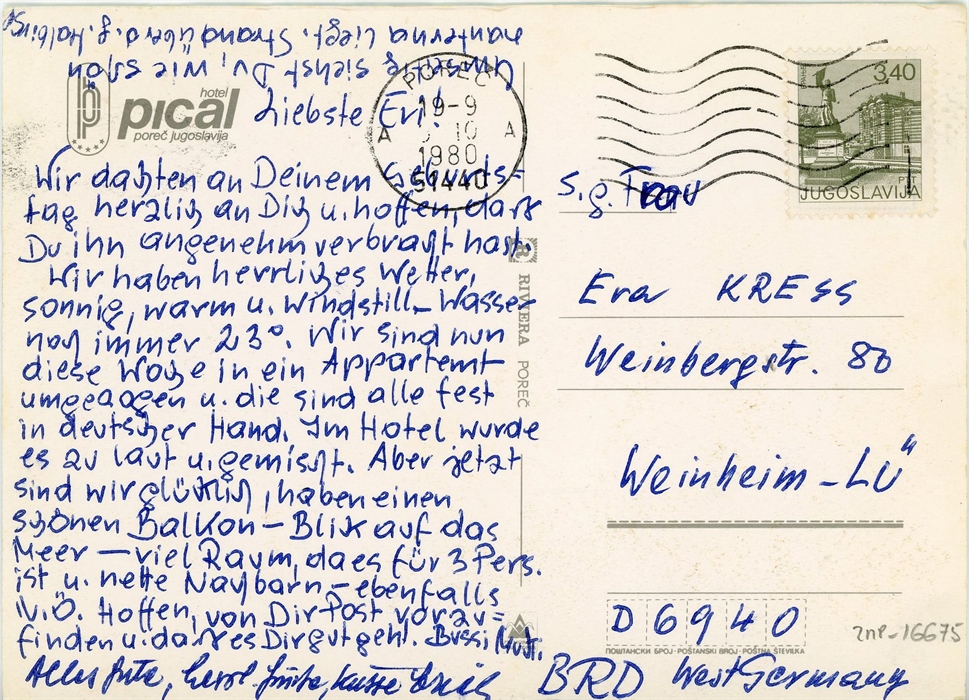 Umseitig siehst Du, wie schön
Lanterna liegt. Strand über d. g. Halbins
hotel
pical
poreč jugoslavija
Liebste Evi!
Wir dachten an Deinem Geburts-
tag herzlich an Dich u. hoffen, dass
Du ihn angenehm verbracht hast.
Wir haben herrliches Wetter,
sonnig, warm u. windstill – Wasser
noch immer 23°. Wir sind nun
diese Woche in ein Appartemt
umgezogen u. die sind alle fest
in deutscher Hand. Im Hotel wurde
es zu laut u. gemischt. Aber jetzt
sind wir glücklich, haben einen
schönen Balkon – Blick auf das
Meer – viel Raum, da es für 3 Pers.
ist u. nette Nachbarn – ebenfalls
N.Ö. Hoffen, von Dir Post vorzu=
finden u. dass es Dir gut geht. Bussi Muti.
Alles Gute, herzl. Grüße, Küsse
POREČ
19-9
10
1980
51440
A A
RIVIERA POREČ
3,40
PTT
JUGOSLAVIJA
S. g. Frau
Eva KRESS
Weinbergstr. 80
Weinheim – Lü"
D 6 9 4 0
ПОШТАНСКИ БРОЈ - POŠTANSKI BROJ - POŠTNA ŠTEVILKA
BRD West Germany
2np-16675